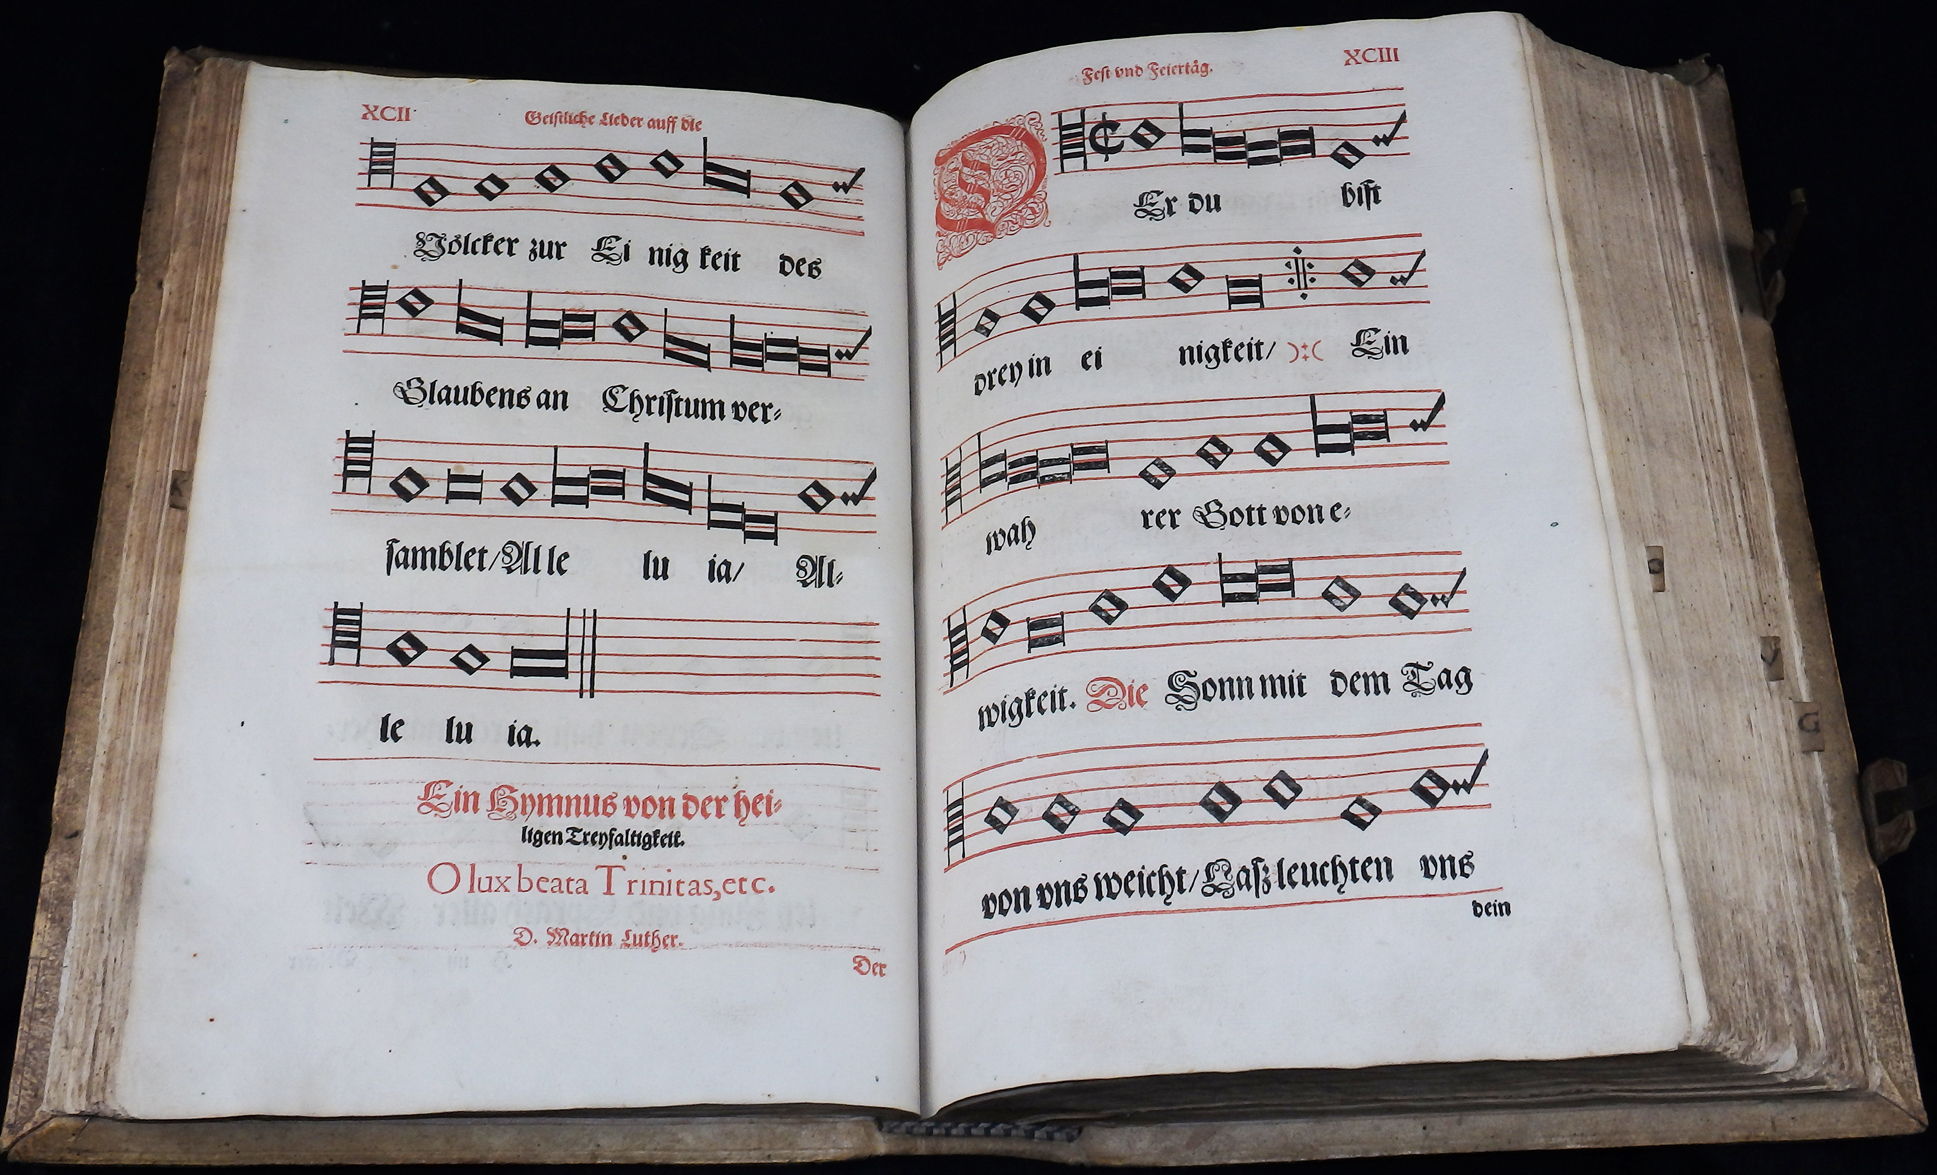 XCII
Geistliche Lieder auff die
Völcker zur Ei nig keit des
Glaubens an Christum ver-
samblet/ Al le lu ia/ Al-
le lu ia.
Ein Hymnus von der hei-
ligen Treyfaltigkeit.
O lux beata Trinitas, etc.
D. Martin Luther.
Der
Fest vnd Feiertåg.
XCIII
DEr du bist
drey in ei nigkeit/ Ein
wah rer Gott von e-
wigkeit. Die Sonn mit dem Tag
von vns weicht/ Laß leuchten vns
dein